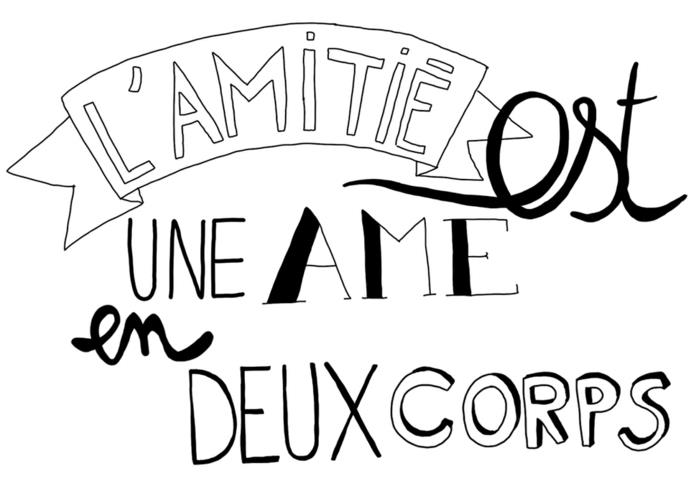 L'AMITIÉ est
UNE AME
en
DEUX CORPS